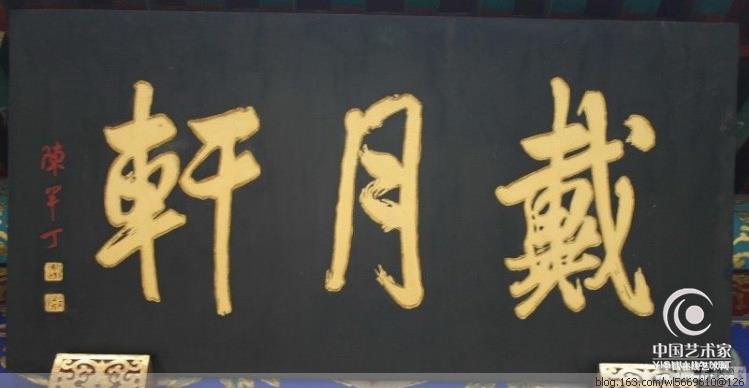 戴月軒
陳半丁
中国艺术家
blog.163.com/wl5669610@126